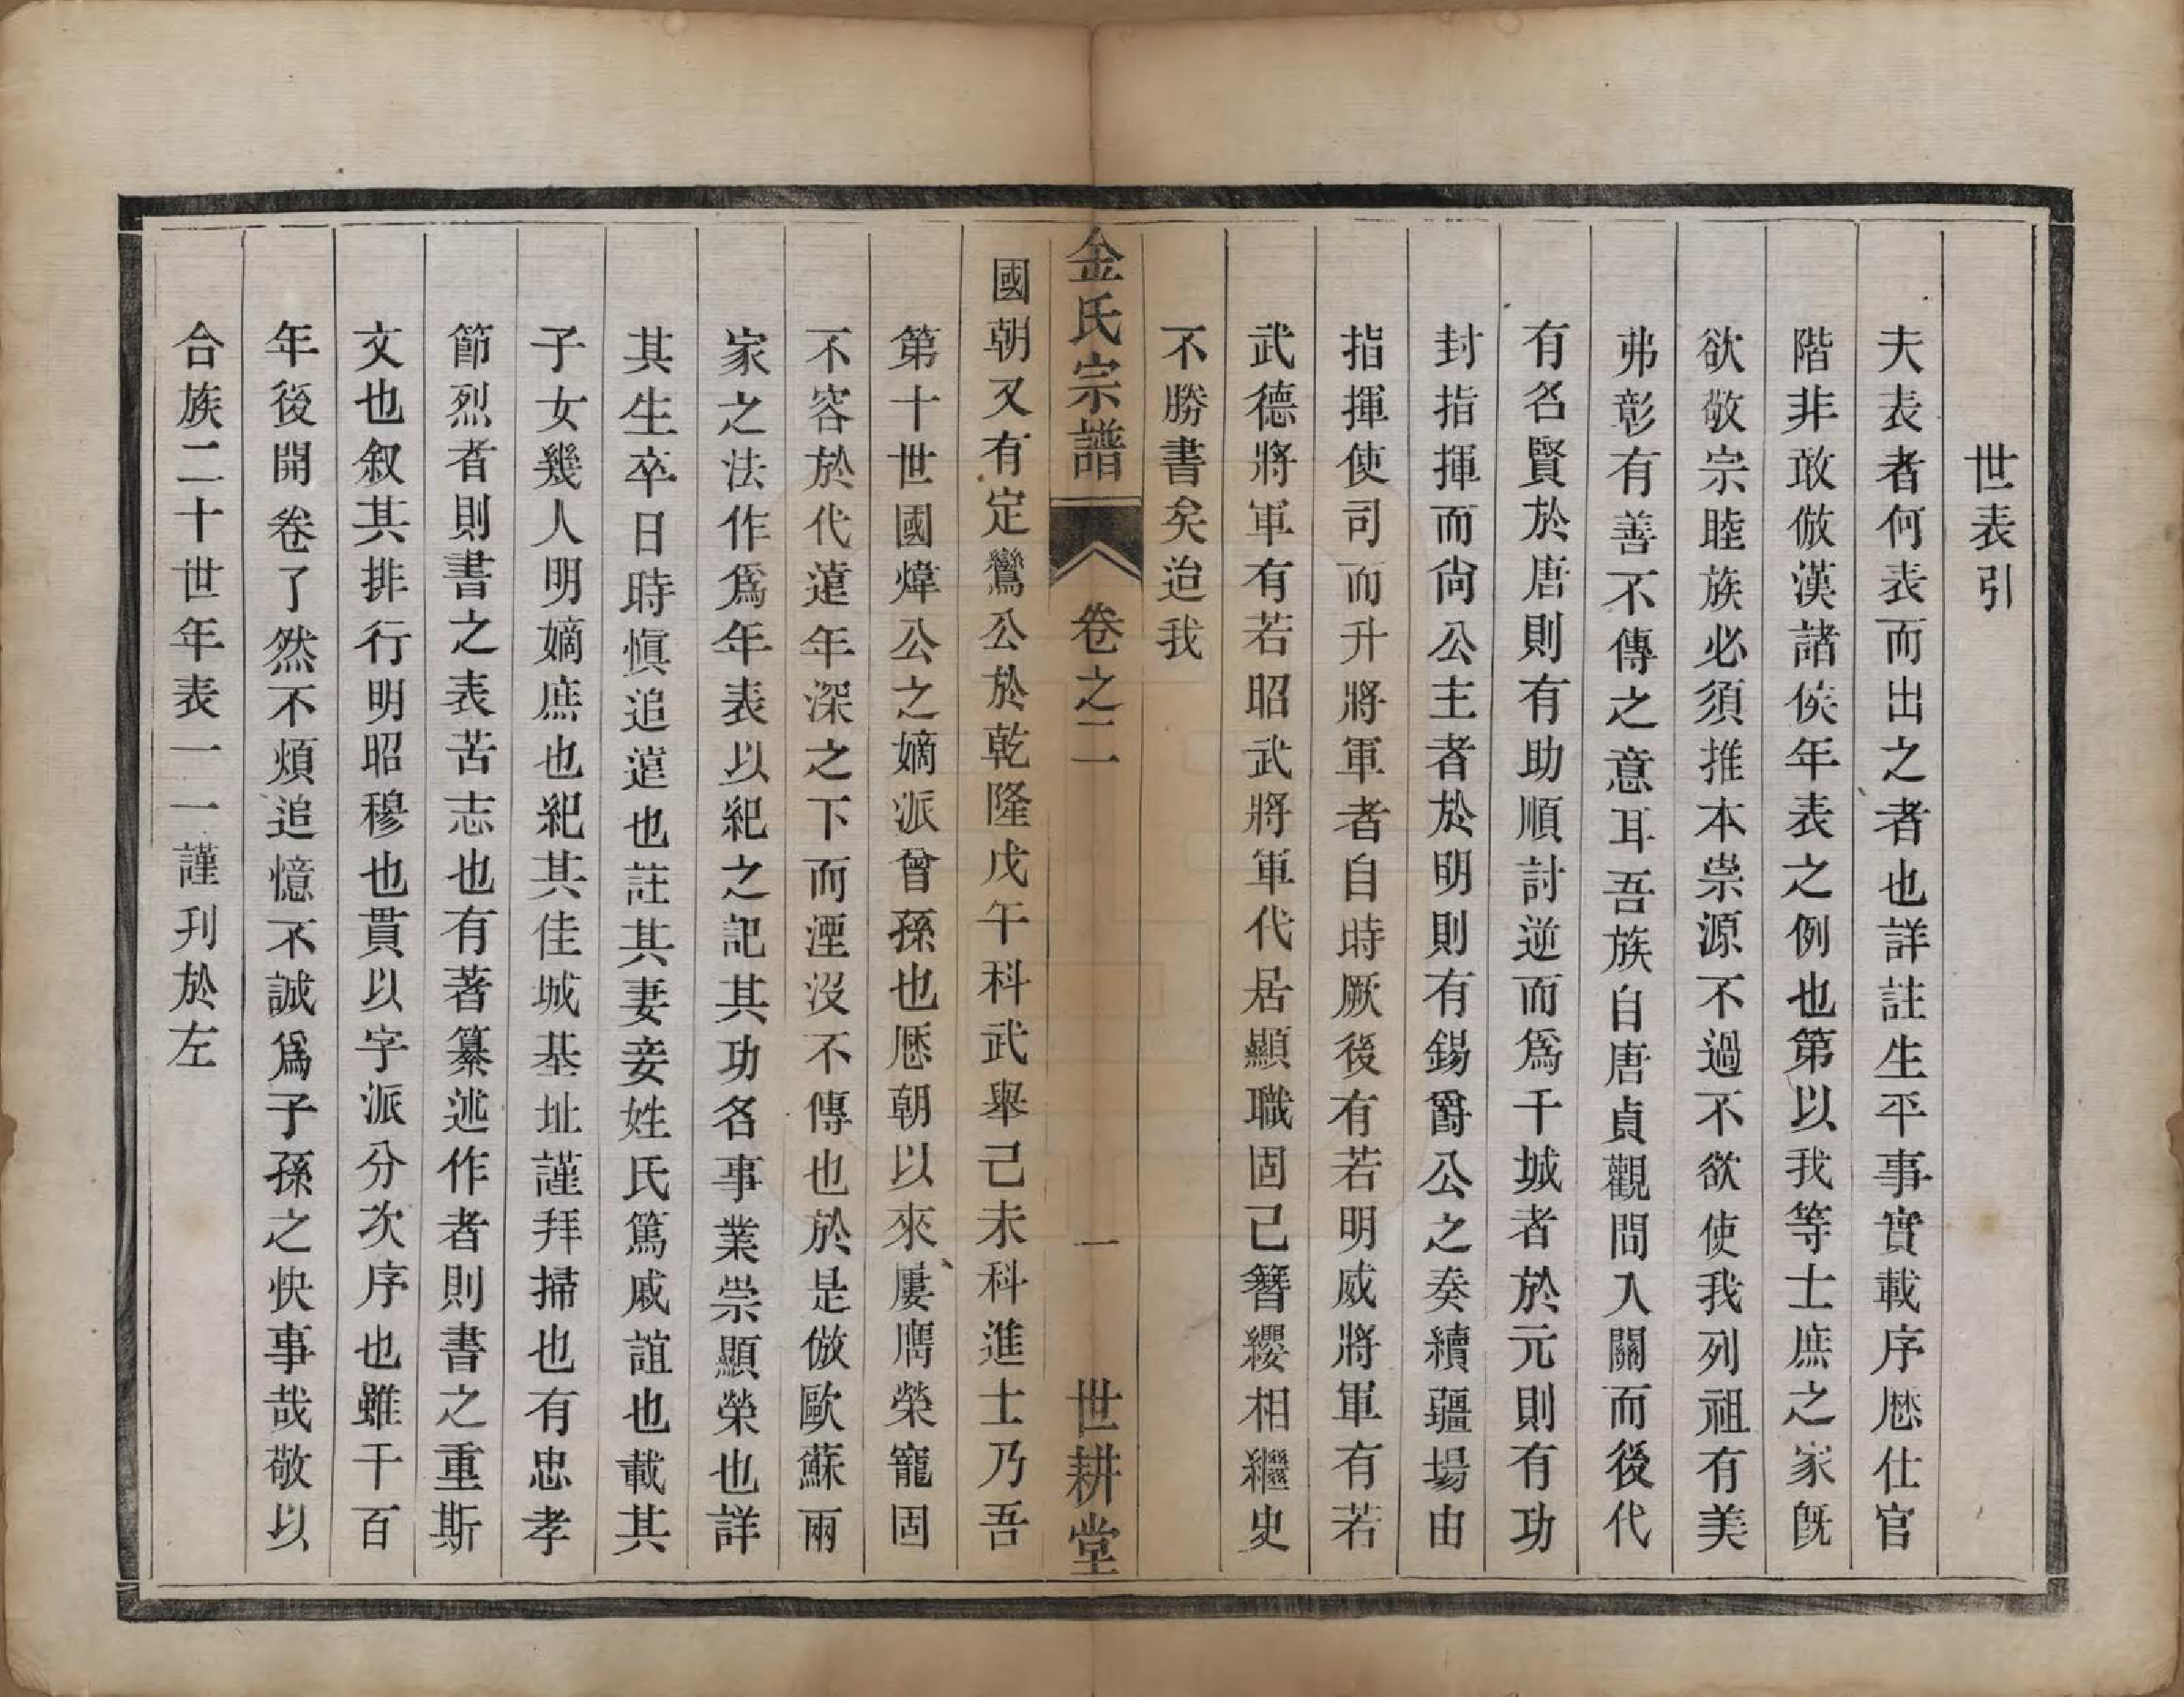 世表引
夫表者何表而出之者也詳註生平事實載序歷仕官
階非敢倣漢諸侯年表之例也第以我等士庶之家旣
欲敬宗睦族必須推本崇源不過不欲使我列祖有美
弗彰有善不傳之意耳吾族自唐貞觀問入關而後代
有名賢於唐則有助順討逆而爲干城者於元則有功
封指揮而尙公主者於明則有錫爵公之奏續疆場由
指揮使司而升將軍者自時厥後有若明威將軍有若
武德將軍有若昭武將軍代居顯職固已簪纓相繼史
不勝書矣迨我
金氏宗譜 卷之二 一 世耕堂
國朝又有定鸞公於乾隆戊午科武舉己未科進士乃吾
第十世國煒公之嫡派曾孫也歷朝以來屢膺榮寵固
不容於代遠年深之下而湮沒不傳也於是倣歐蘇兩
家之法作爲年表以紀之記其功名事業崇顯榮也詳
其生卒日時愼追遠也註其妻妾姓氏篤戚誼也載其
子女幾人明嫡庶也紀其佳城基址謹拜掃也有忠孝
節烈者則書之表苦志也有著纂述作者則書之重斯
文也叙其排行明昭穆也貫以字派分次序也雖千百
年後開卷了然不煩追憶不誠爲子孫之快事哉敬以
合族二十世年表一一謹刊於左